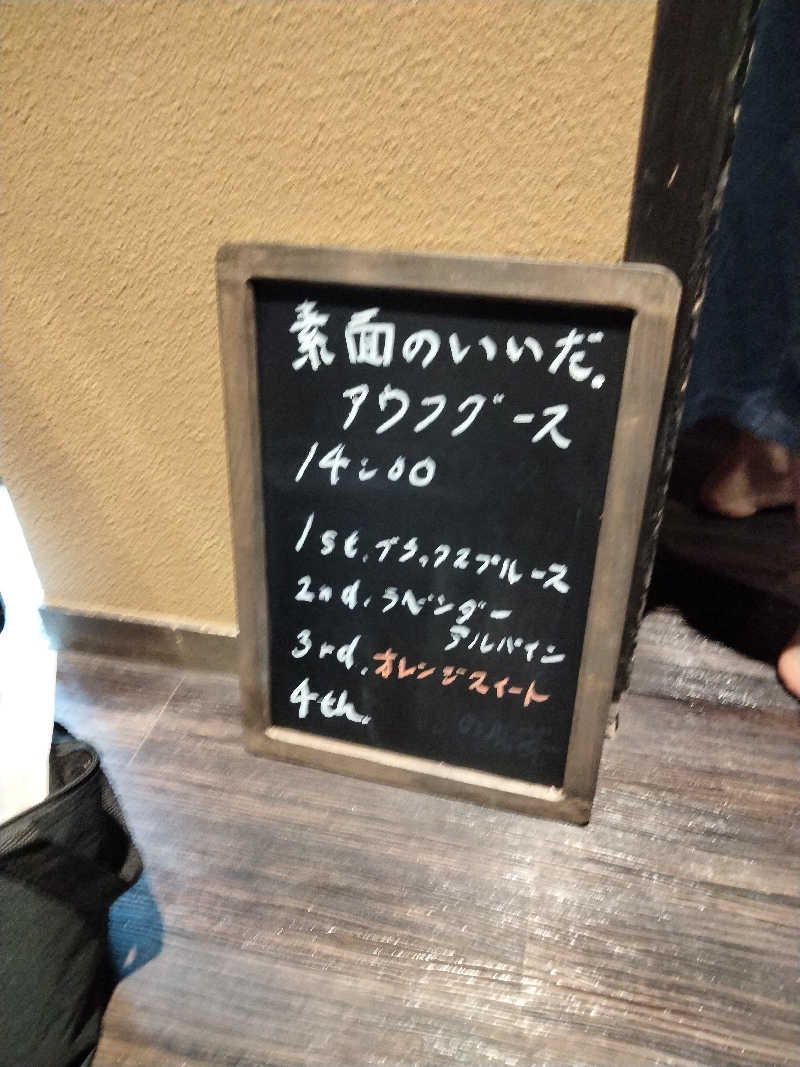 素面のいいだ。
アウフグース
14:00
1st. ブラックスプルース
2nd. ラベンダー
アルパイン
3rd. オレンジスイート
4th.